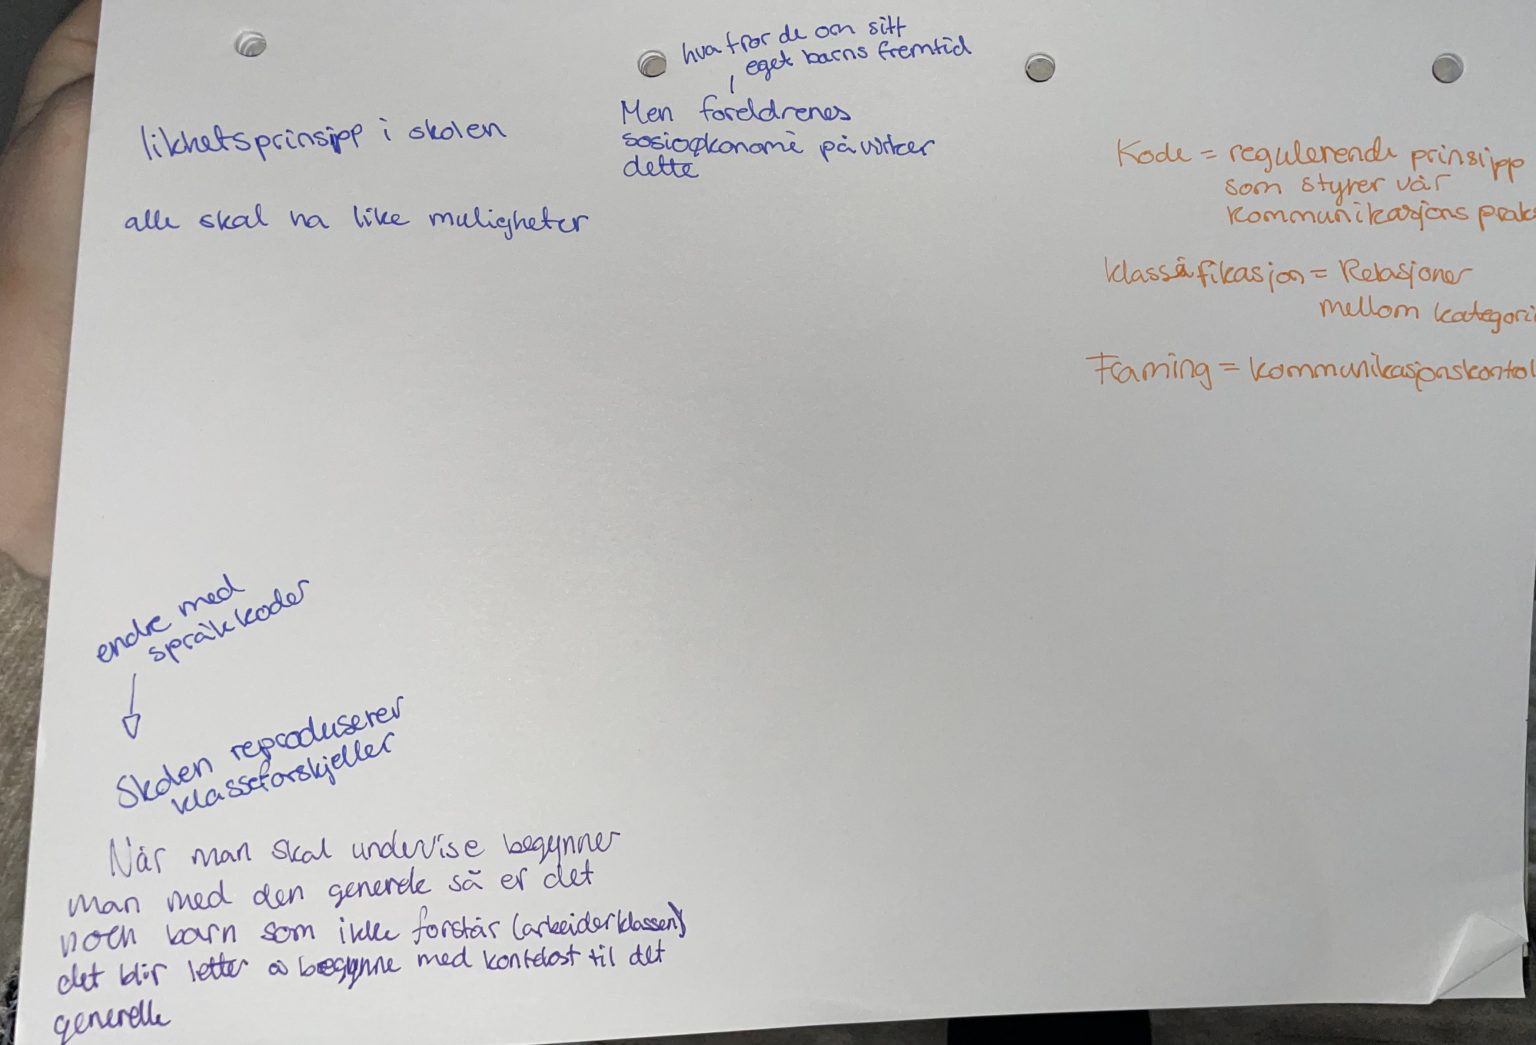 likhetsprinsipp i skolen
alle skal ha like muligheter
hva tror de om sitt
eget barns fremtid
Men foreldrenes
sosioøkonomi påvirker
dette
Kode = regulerende prinsipp
som styrer vår
kommunikasjons prak
klassifikasjon = Relasjoner
mellom kategori
Framing = kommunikasjonskontrol
endre med
språkkoder
Skolen reproduserer
klasseforskjeller
Når man skal undervise begynner
man med den generele så er det
noen barn som ikke forstår (arbeiderklassen)
det blir letter å begynne med kontekst til det
generelle